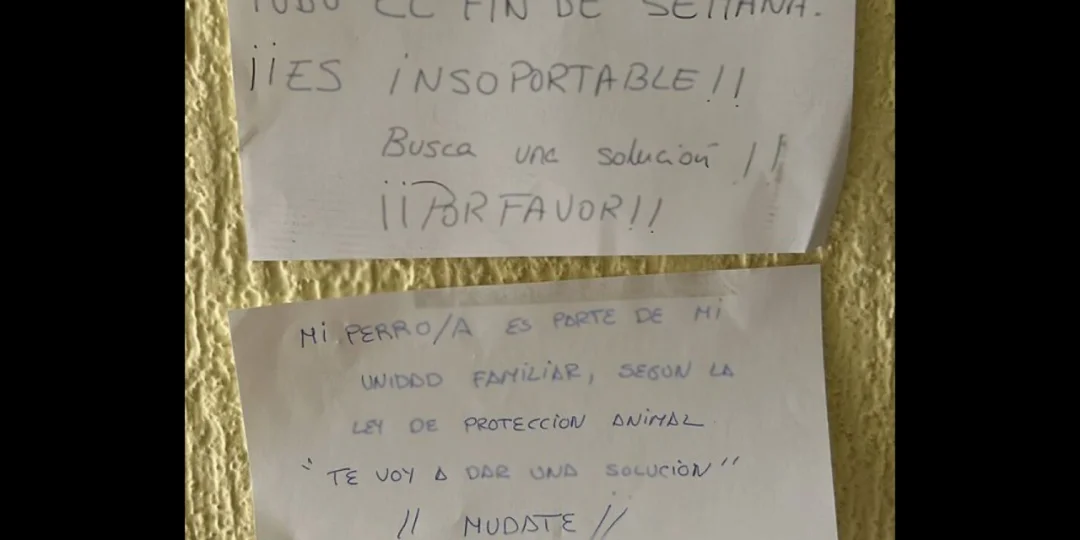 TODO EL FIN DE SEMANA.
¡¡ES iNSOPORTABLE!!
Busca una solución !!
¡¡POR FAVOR!!
Mi PERRO/A ES PARTE DE Mi
UNIDAD FAMiLiAR, SEGUN LA
LEY DE PROTECCION ANiMAL
" TE VOY A DAR UNA SOLUCiÓN"
!! MUDATE !!